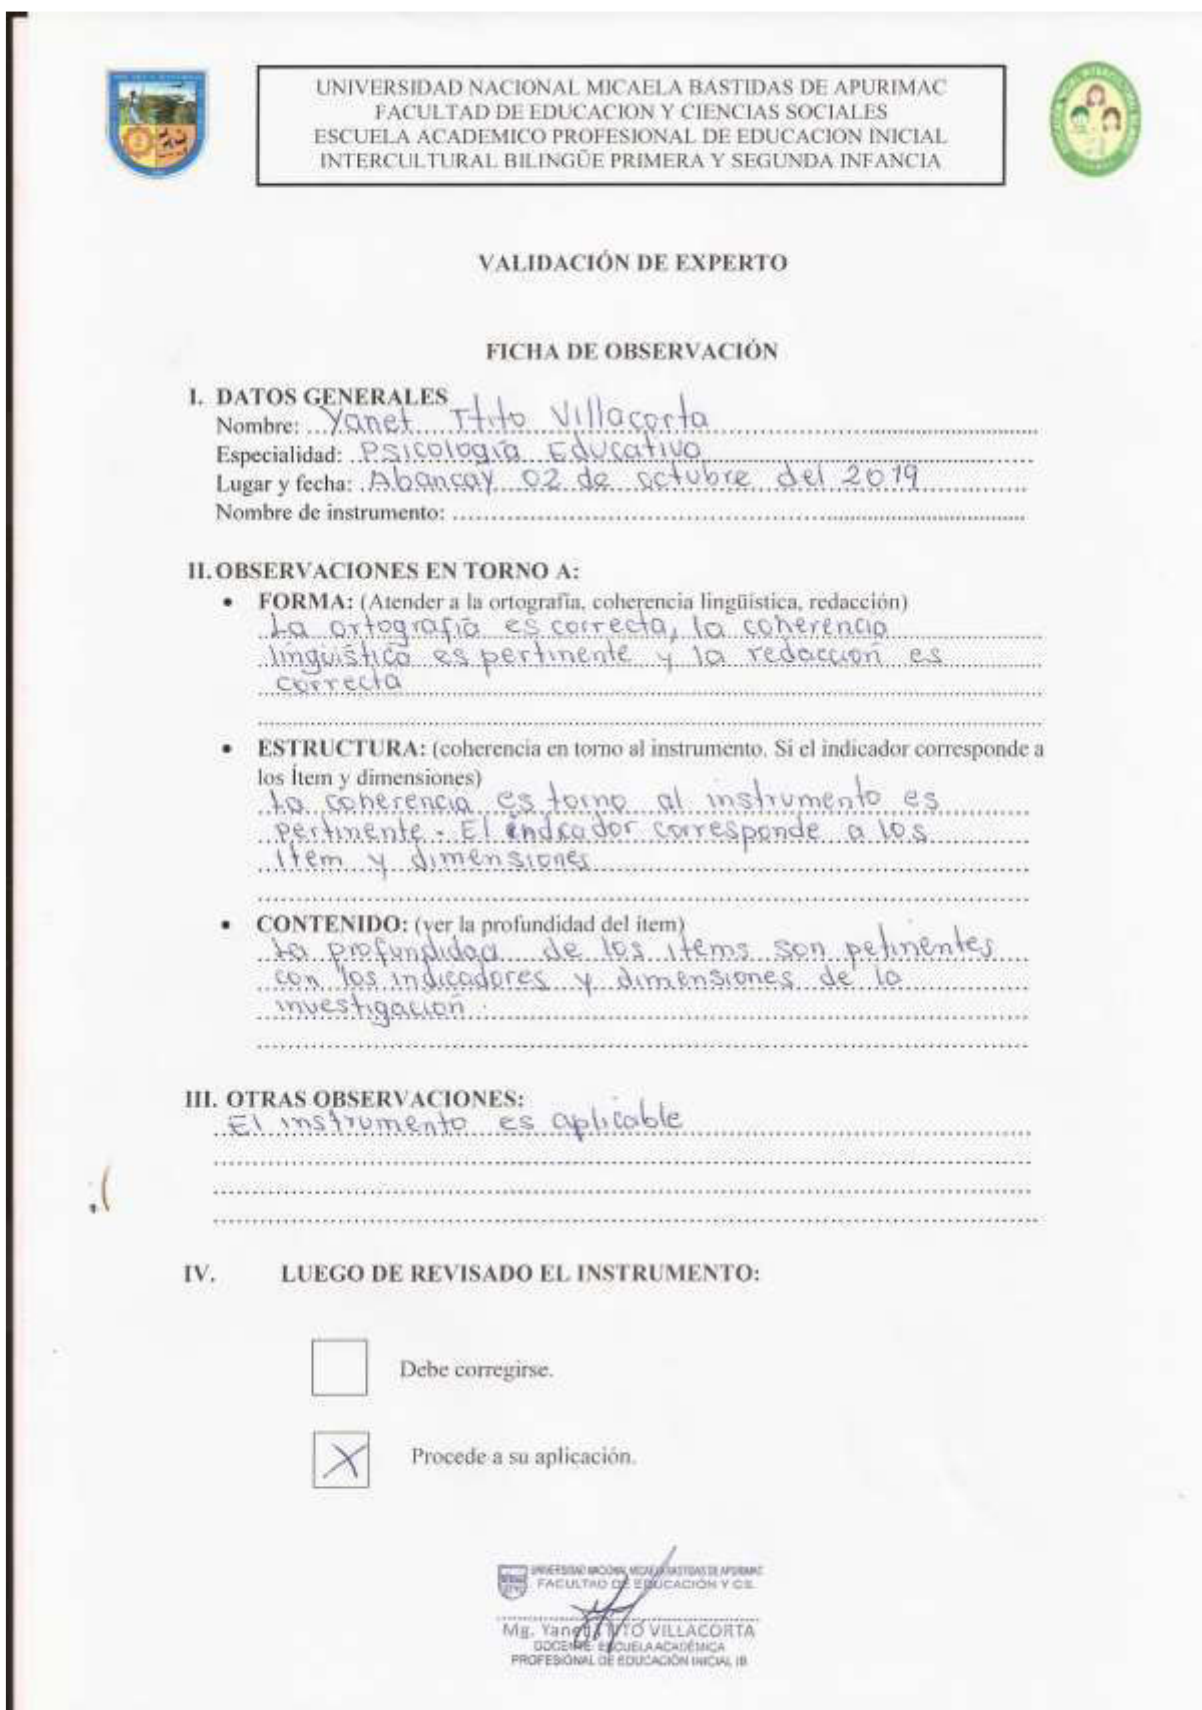 UNIVERSIDAD NACIONAL MICAELA BASTIDAS DE APURIMAC
FACULTAD DE EDUCACION Y CIENCIAS SOCIALES
ESCUELA ACADEMICO PROFESIONAL DE EDUCACION INICIAL
INTERCULTURAL BILINGÜE PRIMERA Y SEGUNDA INFANCIA
VALIDACIÓN DE EXPERTO
FICHA DE OBSERVACIÓN
I. DATOS GENERALES
Nombre: Yanet Ttito Villacorta
Especialidad: Psicología Educativo
Lugar y fecha: Abancay 02 de octubre del 2019
Nombre de instrumento:
II. OBSERVACIONES EN TORNO A:
• FORMA: (Atender a la ortografía, coherencia lingüística, redacción)
La ortografía es correcta, la coherencia
lingüística es pertinente y la redacción es
correcta
• ESTRUCTURA: (coherencia en torno al instrumento. Si el indicador corresponde a
los Ítem y dimensiones)
La coherencia es torno al instrumento es
pertinente. El indicador corresponde a los
item y dimensiones
• CONTENIDO: (ver la profundidad del ítem)
La profundidad de los items son petinentes
con los indicadores y dimensiones de la
investigación.
III. OTRAS OBSERVACIONES:
El instrumento es aplicable
IV. LUEGO DE REVISADO EL INSTRUMENTO:
Debe corregirse.
X Procede a su aplicación.
UNIVERSIDAD NACIONAL MICAELA BASTIDAS DE APURIMAC
FACULTAD DE EDUCACIÓN Y CS.
Mg. Yanet TTITO VILLACORTA
DOCENTE ESCUELA ACADÉMICA
PROFESIONAL DE EDUCACIÓN INICIAL IB